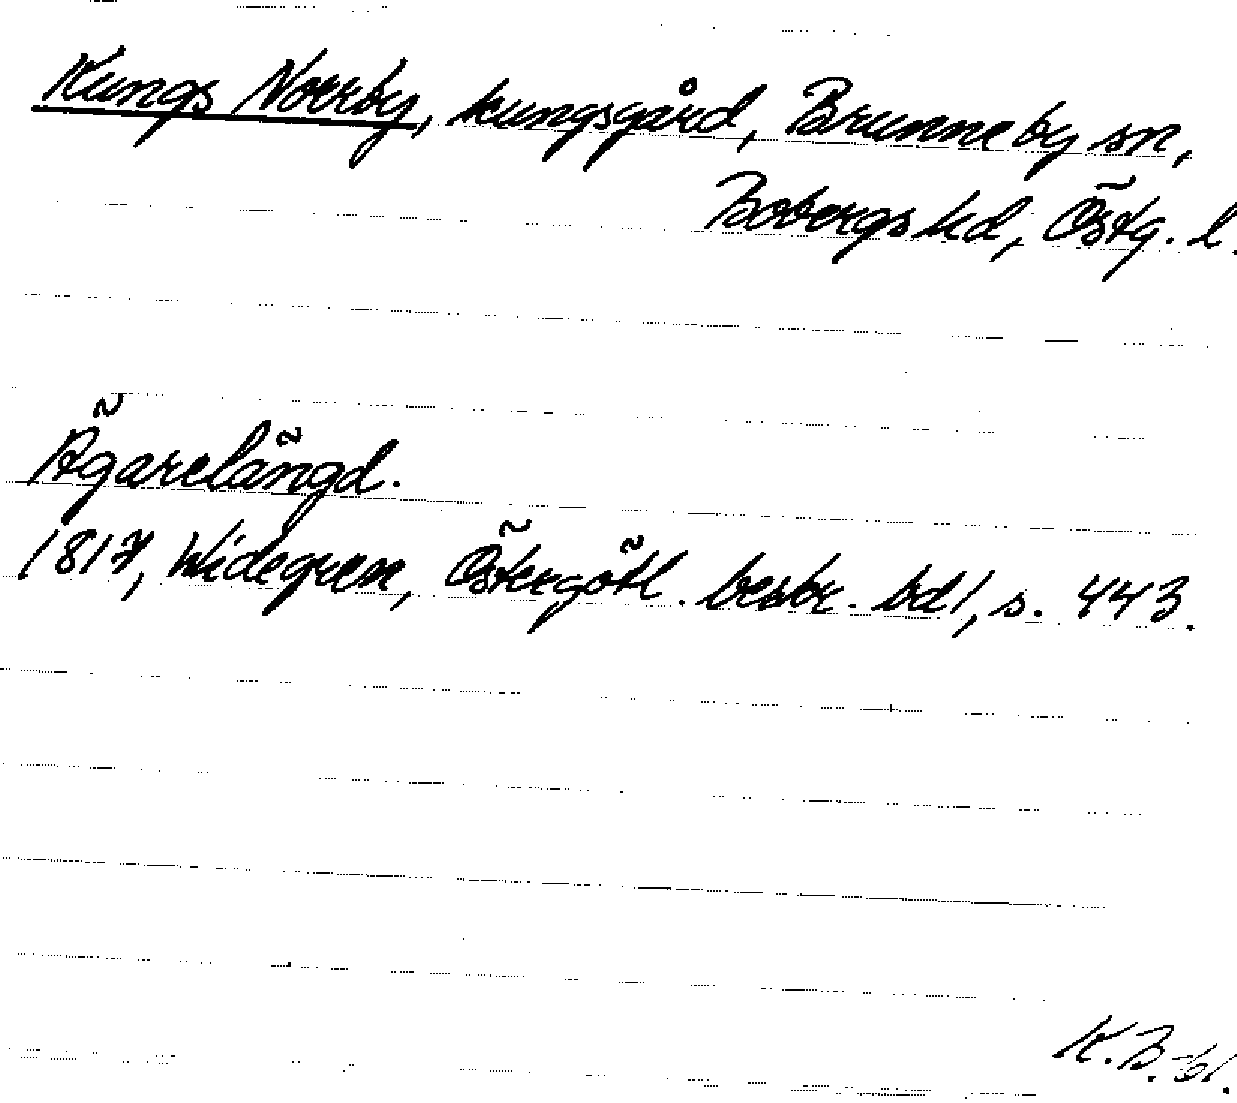 Kungs Norrby, kungsgård, Brunneby sn,
Bobergs hd, Östg. l.
Ägarelängd.
1817, Widegren, Östergötl. beskr. bd 1, s. 443.
K.B.